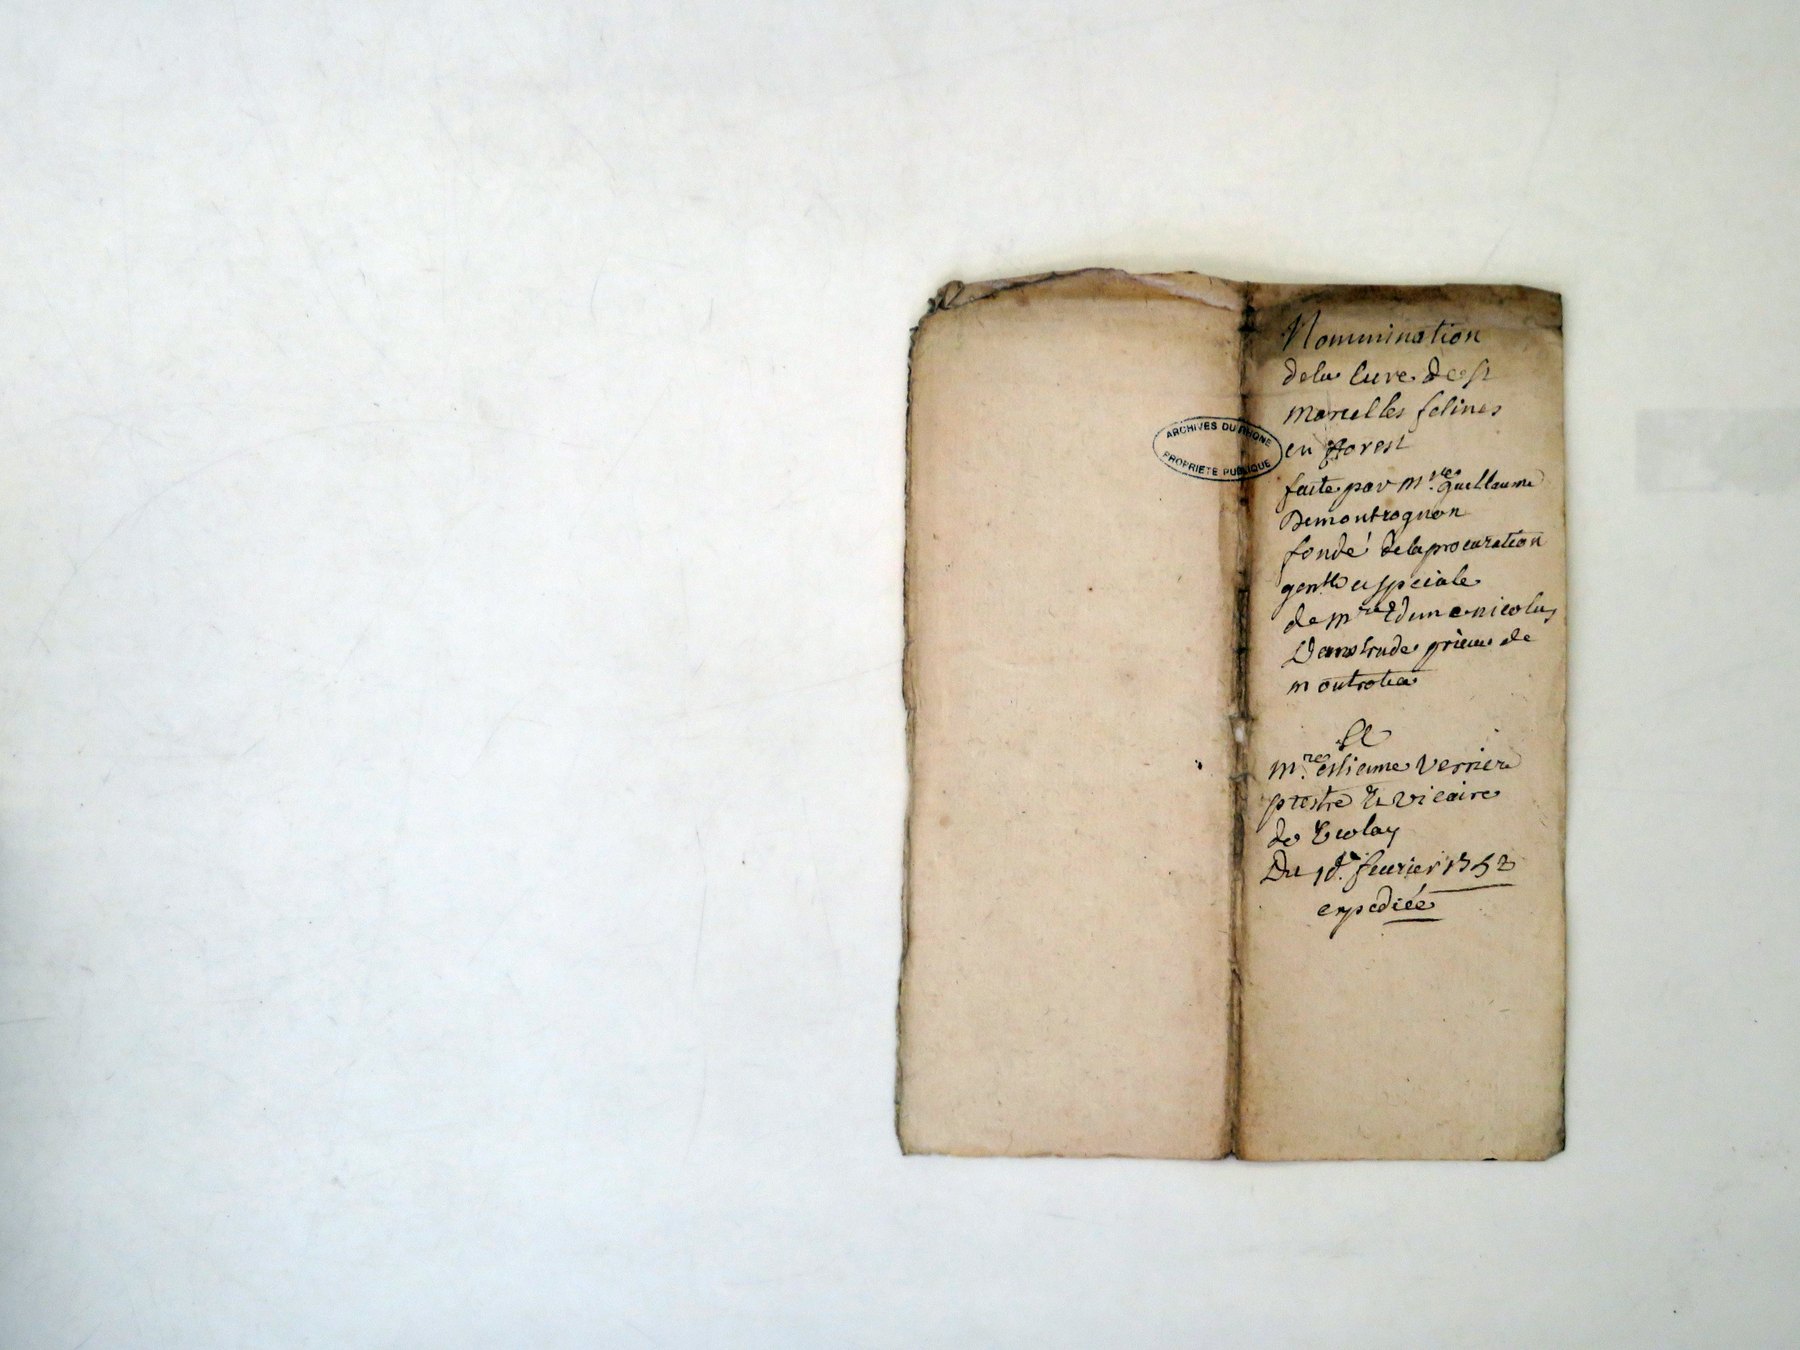 Nommination
dela Cure de st
marcel les felines
en fforest
faite par mre guellaume
Demontrognon
fondé dela procuration
genlle et speciale
de mre Edme nicolas
prieur de
montrotier
A
mre estienne Verriere
prestre et vicaire
de
Du 1er feurier 1752
expediée
ARCHIVES DU RHONE
PROPRIETE PUBLIQUE